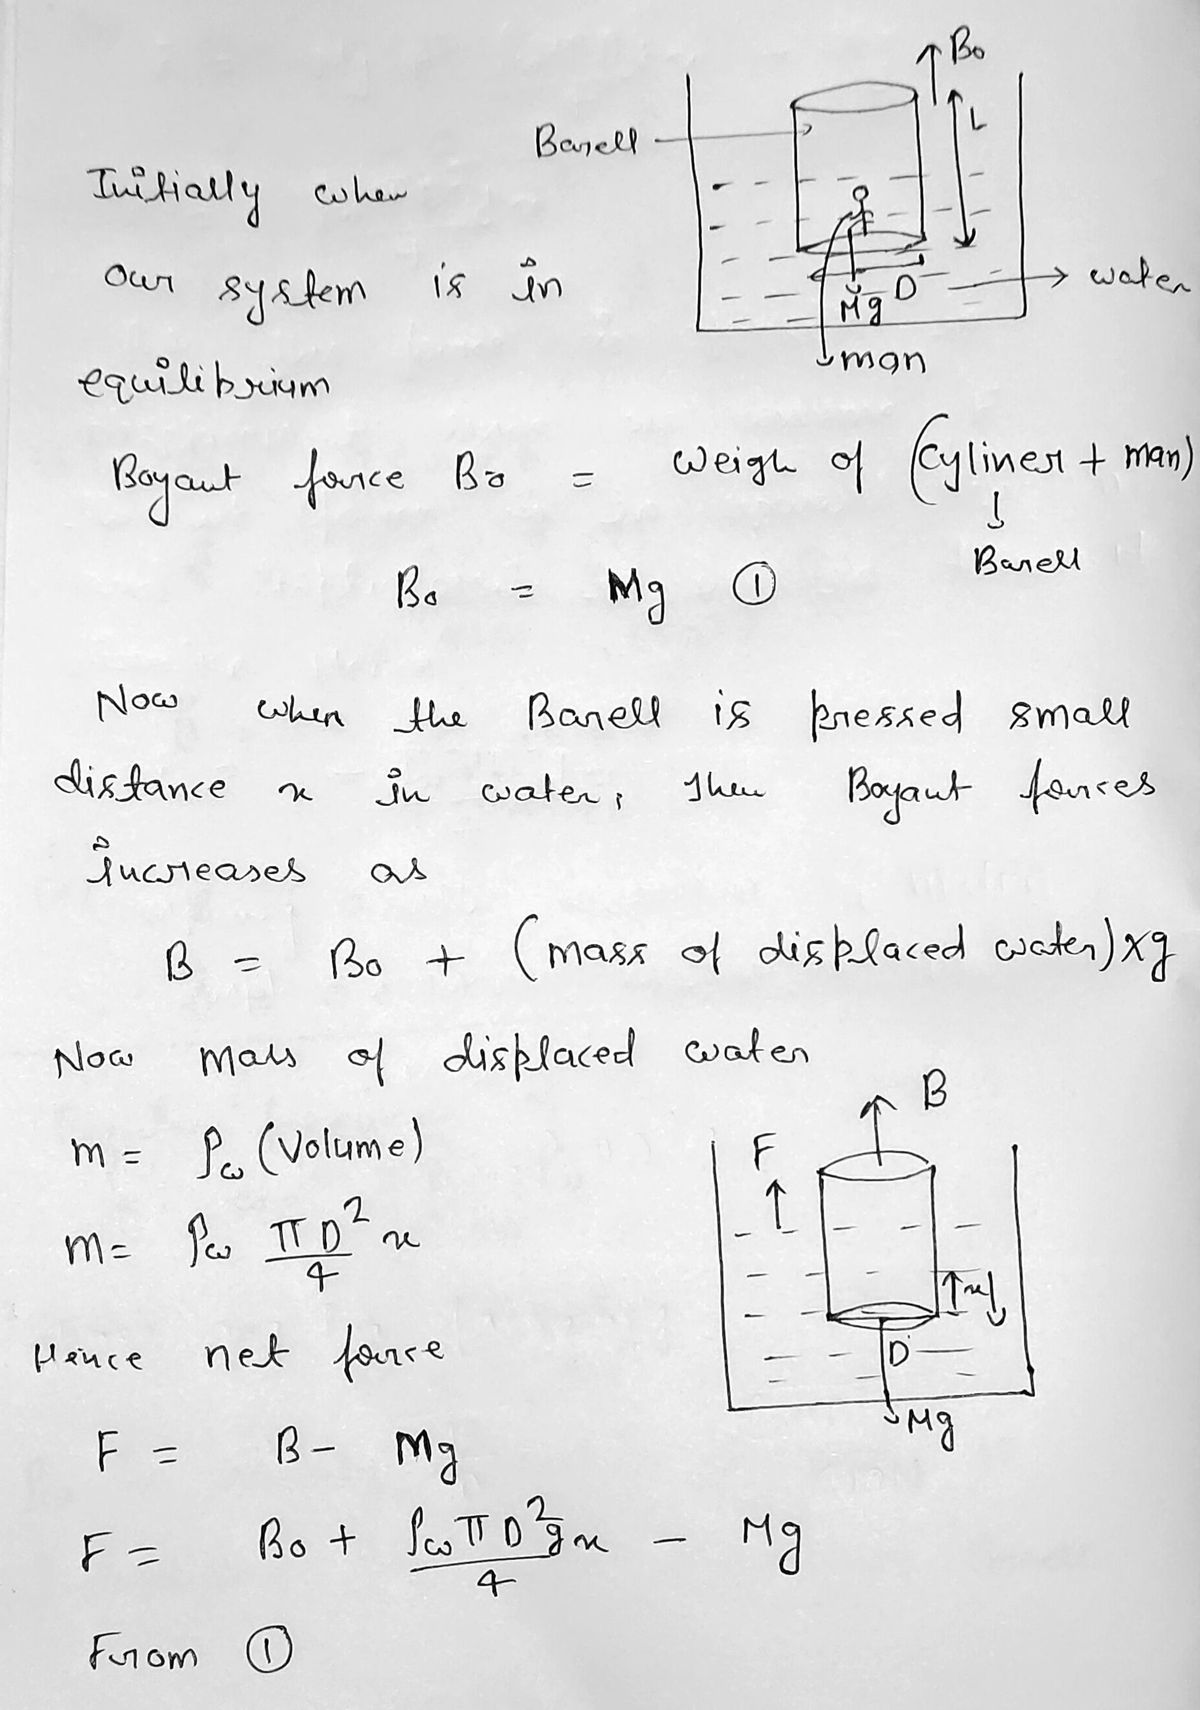 B₀
L
Barell
Initially when
our system is in
D
water
Mg
man
equilibrium
Boyant force B₀ = weigh of (cyliner + man)
↓
Barell
B₀ = Mg ①
Now when the Barell is pressed small
distance x in water, then Boyant forces
increases as
B = B₀ + (mass of displaced water)×g
Now mass of displaced water
m = ρω (Volume)
m = ρω πD²/4 x
Hence net force
B
F
x
D
Mg
F = B - Mg
F = B₀ + ρωπD²gx/4 - Mg
From ①